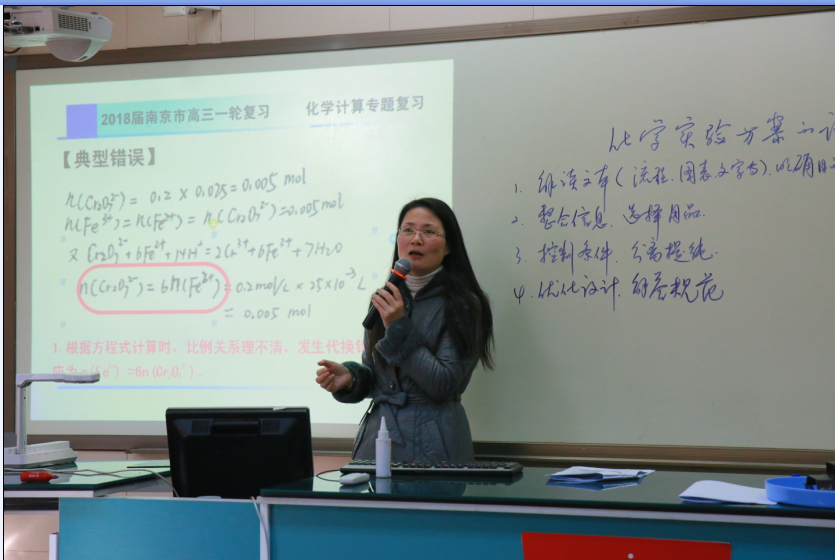 2018届南京市高三一轮复习 化学计算专题复习
【典型错误】
n(Cr₂O₇²⁻) = 0.2 × 0.025 = 0.005 mol
n(Fe³⁺) = n(Fe²⁺) = n(Cr₂O₇²⁻) = 0.005 mol
又 Cr₂O₇²⁻ + 6Fe²⁺ + 14H⁺ = 2Cr³⁺ + 6Fe³⁺ + 7H₂O
n(Cr₂O₇²⁻) = 6n(Fe²⁺) = 0.2mol/L × 25×10⁻³ L
= 0.005 mol
1.根据方程式计算时，比例关系理不清，发生代换
=6n(Cr₂O₇²⁻)。
化学实验方案的
1. 研读文本(流程.图表.文字等).明确目
2. 整合信息. 选择用品.
3. 控制条件. 分离提纯.
4. 优化设计. 解答规范